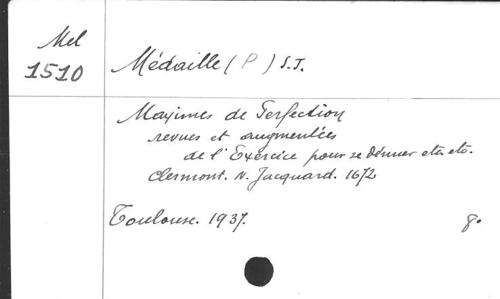 Mel
1510
Médaille (P) S.J.
Maximes de Perfection
revues et augmentées
de l'Exercice pour se dénuer etc. etc.
Clermont. N. Jacquard. 1672
Toulouse. 1937.
8°